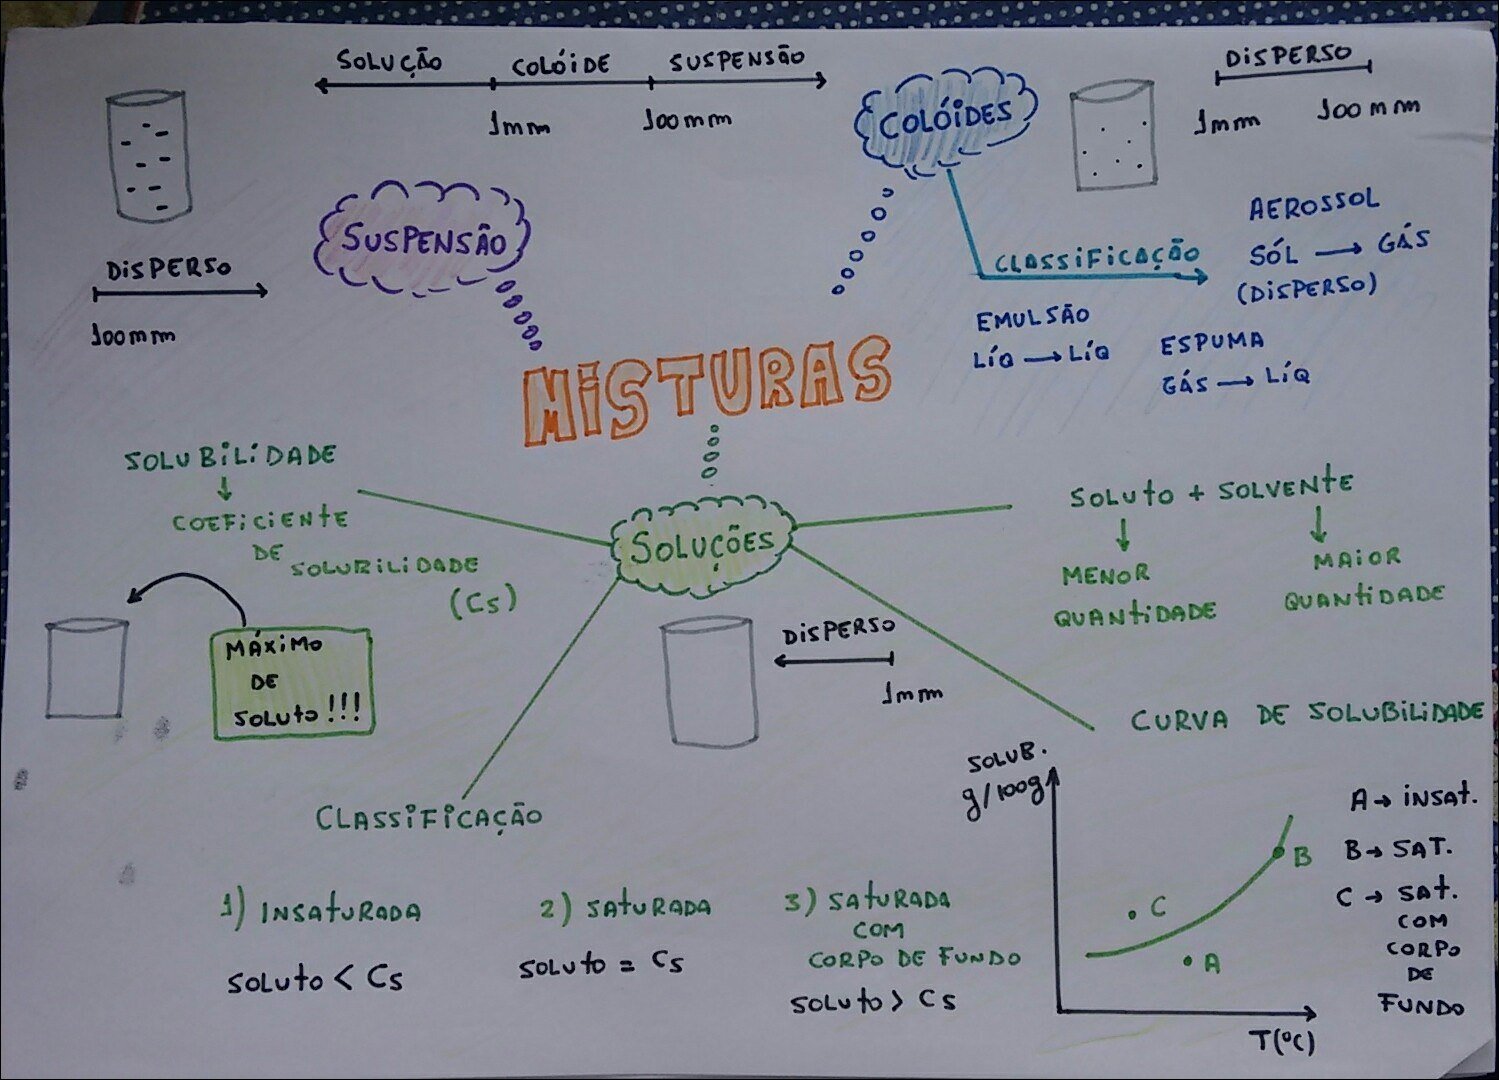 SOLUÇÃO
COLÓIDE
SUSPENSÃO
1mm
100mm
COLÓIDES
DISPERSO
1mm
100mm
SUSPENSÃO
DISPERSO
100mm
CLASSIFICAÇÃO
AEROSSOL
SÓL → GÁS
(DISPERSO)
EMULSÃO
LÍQ → LÍQ
ESPUMA
GÁS → LÍQ
MISTURAS
SOLUBILIDADE
↓
COEFICIENTE
DE
SOLUBILIDADE
(Cs)
MÁXIMO
DE
SOLUTO!!!
SOLUÇÕES
DISPERSO
1mm
SOLUTO + SOLVENTE
↓ ↓
MENOR
QUANTIDADE
MAIOR
QUANTIDADE
CLASSIFICAÇÃO
1) INSATURADA
SOLUTO < Cs
2) SATURADA
SOLUTO = Cs
3) SATURADA
COM
CORPO DE FUNDO
SOLUTO > Cs
CURVA DE SOLUBILIDADE
SOLUB.
g/100g
B
C
A
T(ºC)
A → INSAT.
B → SAT.
C → SAT.
COM
CORPO
DE
FUNDO